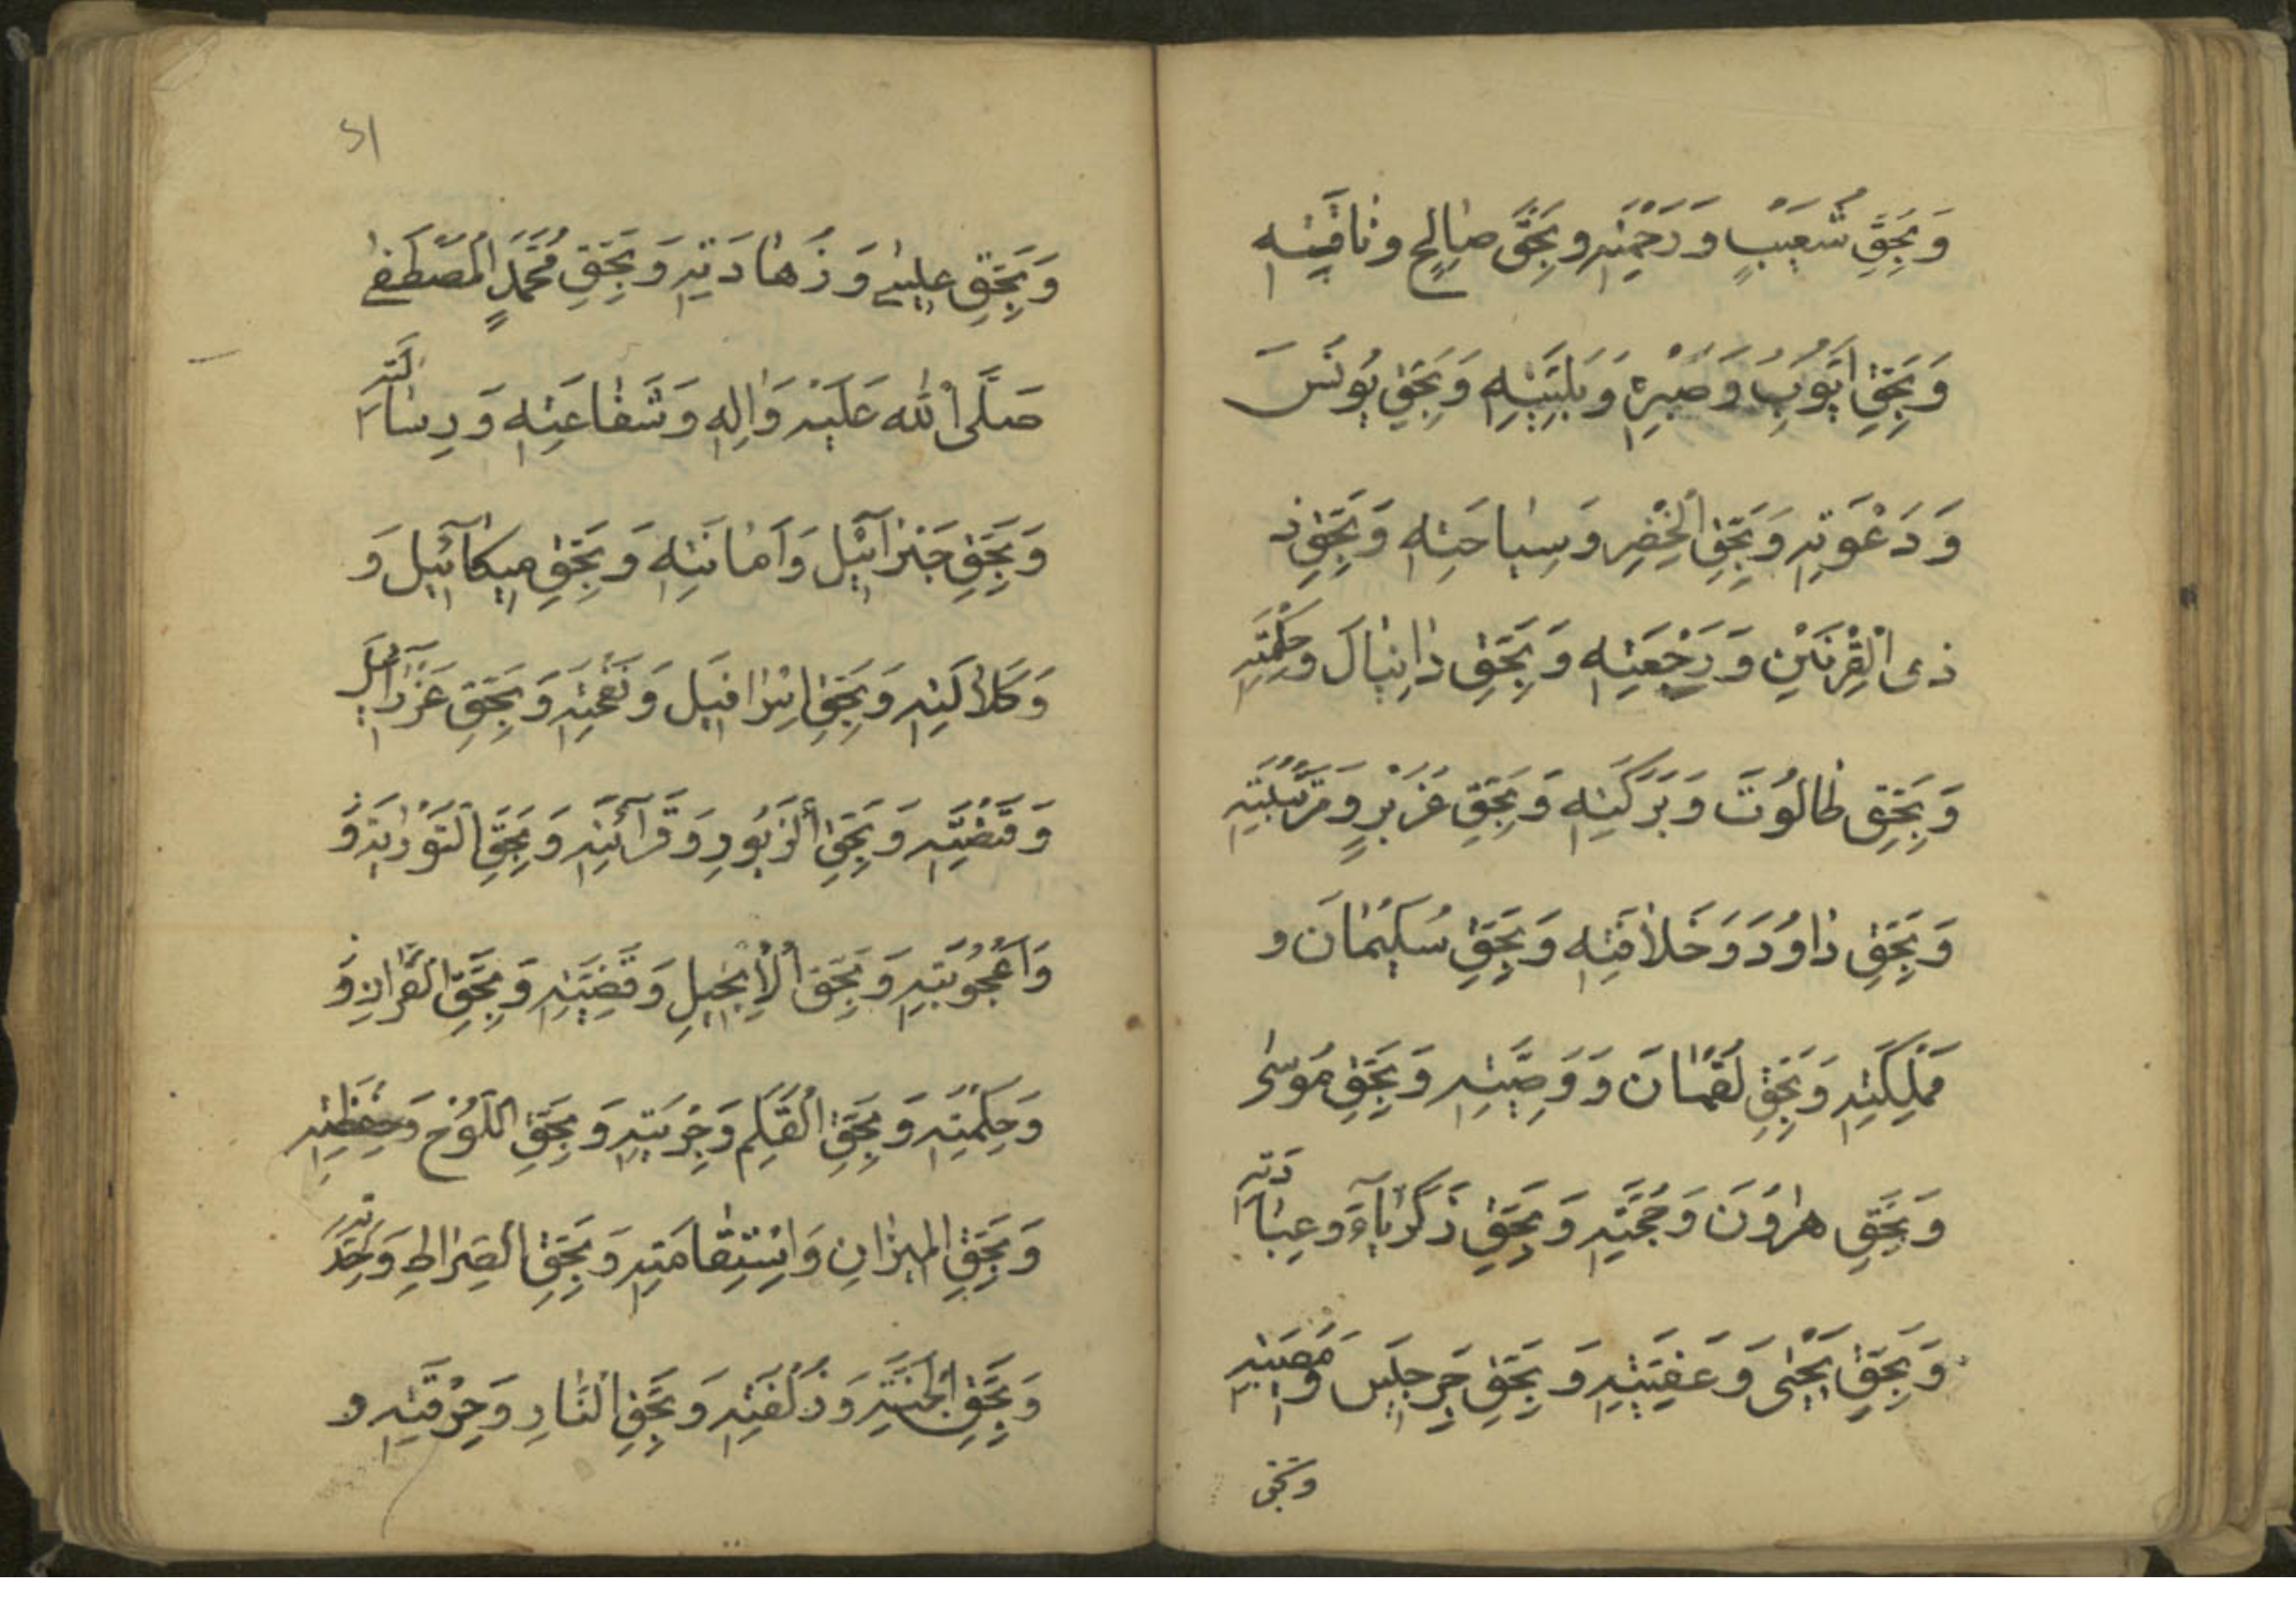 وَبِحَقِّ شُعَيْبٍ وَرَحْمَتِهِ وَبِحَقِّ صَالِحٍ وَنَاقَتِهِ
وَبِحَقِّ اَيُّوبَ وَصَبْرِهِ وَبَلِيَّتِهِ وَبِحَقِّ يُونُسَ
وَدَعْوَتِهِ وَبِحَقِّ الْخِضْرِ وَسِيَاحَتِهِ وَبِحَقِّ ذ
ذِى الْقَرْنَيْنِ وَرَجْعَتِهِ وَبِحَقِّ دَانِيَالَ وَحِكْمَتِهِ
وَبِحَقِّ طَالُوتَ وَبَرَكَتِهِ وَبِحَقِّ عُزَيْرٍ وَمَرْتَبَتِهِ
وَبِحَقِّ دَاوُدَ وَخَلَافَتِهِ وَبِحَقِّ سُلَيْمَانَ و
مَمْلِكَتِهِ وَبِحَقِّ لُقْمَانَ وَوَصِيَّتِهِ وَبِحَقِّ مُوسٰى
وَبِحَقِّ هٰرُونَ وَحُجَّتِهِ وَبِحَقِّ زَكَرِيَّاءَ وَعِبَادَتِهِ
وَبِحَقِّ يَحْيٰى وَعَفِيَّتِهِ وَبِحَقِّ جِرْجِيسَ وَمُصِيبَتِهِ
وبحق
٥١
وَبِحَقِّ عِيسٰى وَزَهَادَتِهِ وَبِحَقِّ مُحَمَّدٍ الْمُصْطَفٰى
صَلَّى اللّٰهُ عَلَيْهِ وَاٰلِهِ وَشَفَاعَتِهِ وَرِسَالَتِهِ
وَبِحَقِّ جَبْرَآئِيلَ وَاَمَانَتِهِ وَبِحَقِّ مِيكَآئِيلَ وَ
وَكَلَالَتِهِ وَبِحَقِّ اِسْرَافِيلَ وَنَفْخَتِهِ وَبِحَقِّ عَزْرَآئِيلَ
وَقَبْضَتِهِ وَبِحَقِّ الزَّبُورِ وَقَرَآئَتِهِ وَبِحَقِّ التَّوْرٰيةِ وَ
وَاُعْجُوبَتِهِ وَبِحَقِّ الْاِنْجِيلِ وَقَضِيَّتِهِ وَبِحَقِّ الْقُرْاٰنِ وَ
وَحِكْمَتِهِ وَبِحَقِّ الْقَلَمِ وَجِرْيَتِهِ وَبِحَقِّ اللَّوْحِ وَحِفْظِهِ
وَبِحَقِّ الْمِيزَانِ وَاسْتِقَامَتِهِ وَبِحَقِّ الصِّرَاطِ وَحِدَّتِهِ
وَبِحَقِّ الْجَنَّةِ وَزُلْفَتِهِ وَبِحَقِّ النَّارِ وَحِرْقَتِهِ و